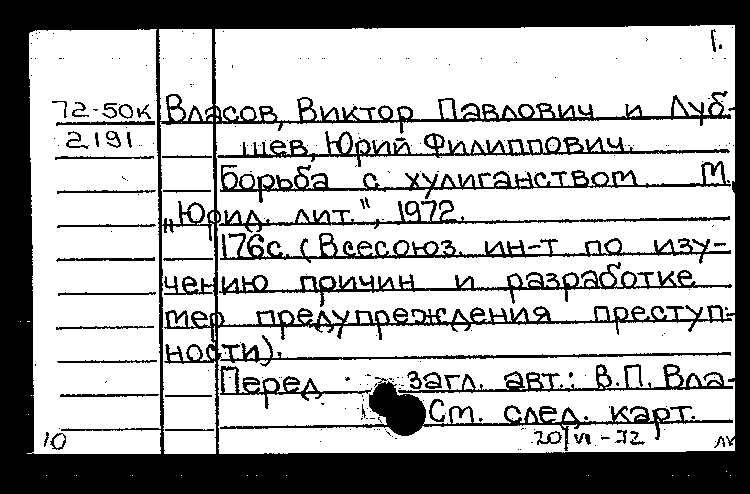 1.
72-50к Власов, Виктор Павлович и Луб-
2191 шев, Юрий Филиппович.
Борьба с хулиганством. М.
„Юрид. лит.", 1972.
176с. (Всесоюз. ин-т по изу-
чению причин и разработке
мер предупреждения преступ-
ности).
Перед загл. авт.: В.П. Вла-
См. след. карт.
10 20/VI-72